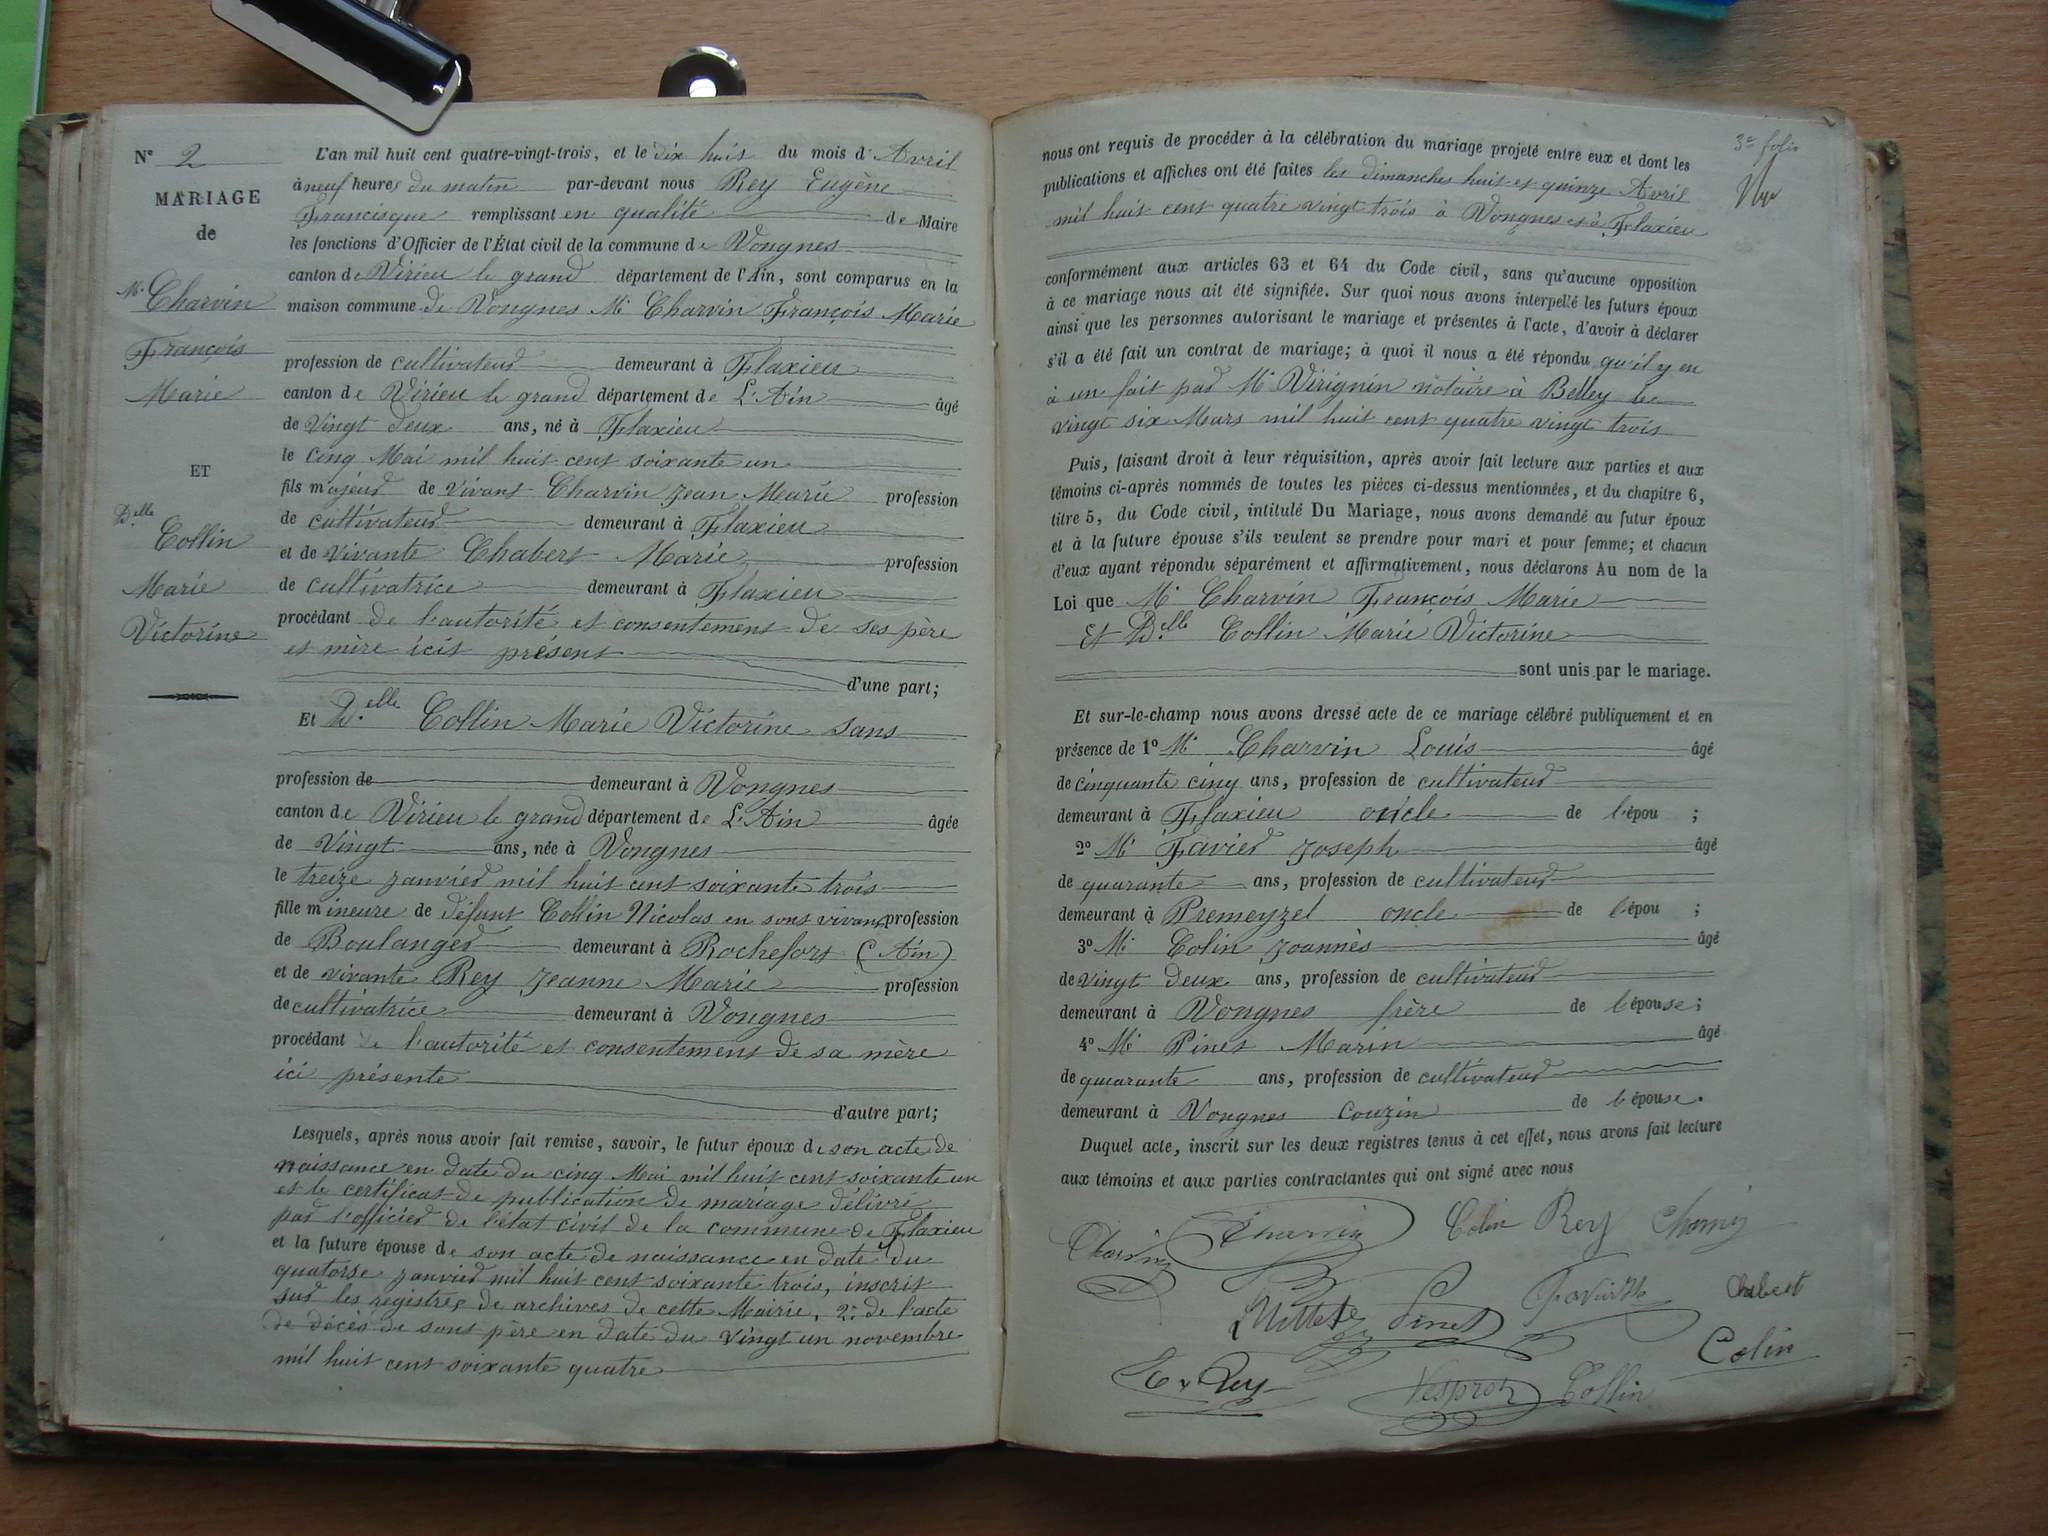 N° 2
MARIAGE
de
Mr Charvin
François
Marie
ET
Delle
Collin
Marie
Victorine
L'an mil huit cent quatre-vingt-trois, et le dix huit du mois d'Avril
à neuf heures du matin par-devant nous Rey Eugène
Francisque remplissant en qualité de Maire
les fonctions d'Officier de l'État civil de la commune de Vongnes
canton de Virieu le grand département de l'Ain, sont comparus en la
maison commune de Vongnes Mr Charvin François Marie
profession de cultivateur demeurant à Flaxieu
canton de Virieu le grand département de L'Ain âgé
de Vingt deux ans, né à Flaxieu
le cinq Mai mil huit cent soixante un
fils majeur de vivant Charvin Jean Marie profession
de cultivateur demeurant à Flaxieu
et de vivante Chabert Marie profession
de cultivatrice demeurant à Flaxieu
procédant de l'autorité et consentement de ses père
et mère icit présent
d'une part;
Et Delle Collin Marie Victorine sans
profession de demeurant à Vongnes
canton de Virieu le grand département de L'Ain âgée
de Vingt ans, née à Vongnes
le treize janvier mil huit cent soixante trois
fille mineure de défunt Collin Nicolas en sont vivant profession
de Boulanger demeurant à Rochefort (Ain)
et de vivante Rey Jeanne Marie profession
de cultivatrice demeurant à Vongnes
procédant de l'autorité et consentement de sa mère
ici présente
d'autre part;
Lesquels, après nous avoir fait remise, savoir, le futur époux de son acte de
naissance en date du cinq Mai mil huit cent soixante un
et le certificat de publication de mariage délivré
par l'officier de l'état civil de la commune de Flaxieu
et la future épouse de son acte de naissance en date du
quatorse janvier mil huit cent soixante trois, inscrit
sur les registres de archives de cette Mairie, 2° de l'acte
de décès de sont père en date du vingt un novembre
mil huit cent soixante quatre
3e folio
Vu
nous ont requis de procéder à la célébration du mariage projeté entre eux et dont les
publications et affiches ont été faites les dimanches huit et quinze Avril
mil huit cent quatre vingt trois à Vongnes et à Flaxieu
conformément aux articles 63 et 64 du Code civil, sans qu'aucune opposition
à ce mariage nous ait été signifiée. Sur quoi nous avons interpellé les futurs époux
ainsi que les personnes autorisant le mariage et présentes à l'acte, d'avoir à déclarer
s'il a été fait un contrat de mariage; à quoi il nous a été répondu qu'il y en
à un fait par Mr Virignin notaire à Belley le
vingt six Mars mil huit cent quatre vingt trois
Puis, faisant droit à leur réquisition, après avoir fait lecture aux parties et aux
témoins ci-après nommés de toutes les pièces ci-dessus mentionnées, et du chapitre 6,
titre 5, du Code civil, intitulé Du Mariage, nous avons demandé au futur époux
et à la future épouse s'ils veulent se prendre pour mari et pour femme; et chacun
d'eux ayant répondu séparément et affirmativement, nous déclarons Au nom de la
Loi que Mr Charvin François Marie
Et Delle Collin Marie Victorine
sont unis par le mariage.
Et sur-le-champ nous avons dressé acte de ce mariage célébré publiquement et en
présence de 1° Mr Charvin Louis âgé
de cinquante cinq ans, profession de cultivateur
demeurant à Flaxieu oncle de l'épou ;
2° Mr Favier Joseph âgé
de quarante ans, profession de cultivateur
demeurant à Premeyzel oncle de l'épou ;
3° Mr Colin Joannès âgé
de Vingt deux ans, profession de cultivateur
demeurant à Vongnes frère de l'épouse;
4° Mr Pinet Marin âgé
de quarante ans, profession de cultivateur
demeurant à Vongnes couzin de l'épouse.
Duquel acte, inscrit sur les deux registres tenus à cet effet, nous avons fait lecture
aux témoins et aux parties contractantes qui ont signé avec nous
Charvin Charvin Colin Rey
Pinet Chabert
Colin
E. Rey Collin